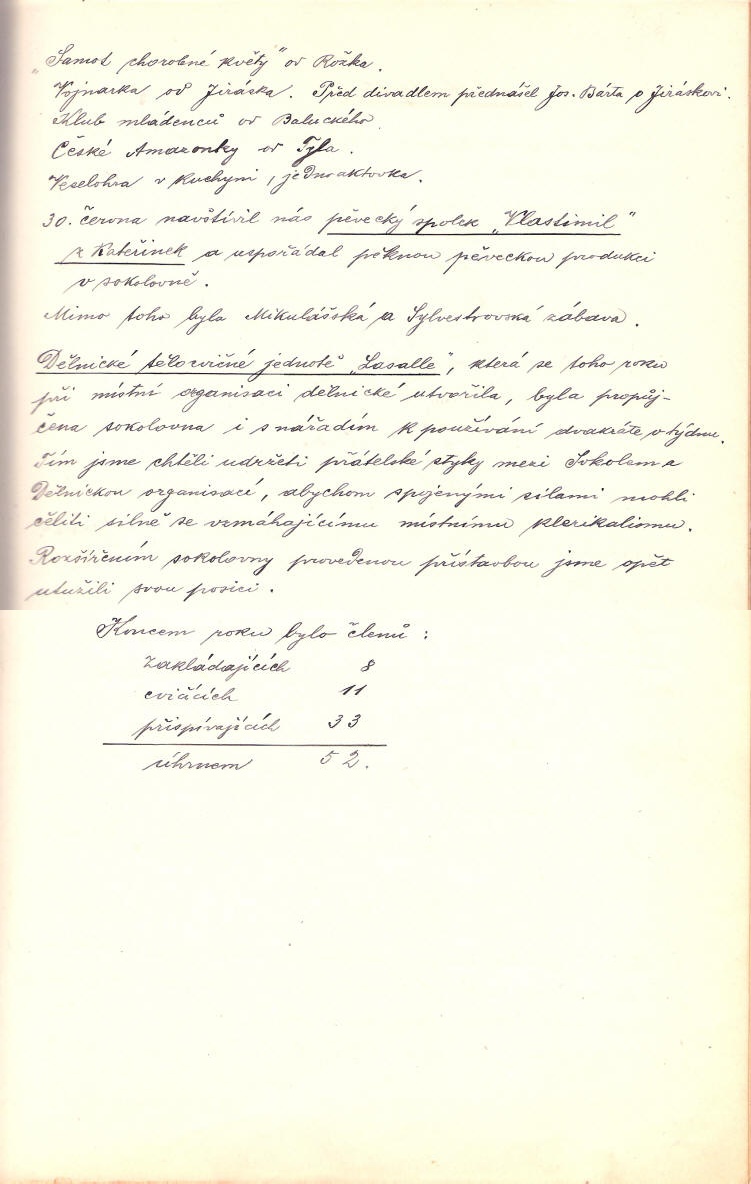 „Samot chorobné květy" od Rožka.
Vojnarka od Jiráska. Před divadlem přednášel Jos. Bárta o Jiráskovi.
Klub mládenců od Baluckého
České Amazonky od Tyla.
Veselohra v kuchyni, jednoaktovka.
30. června navštívil nás pěvecký spolek „Vlastimil"
z Kateřinek a uspořádal pěknou pěveckou produkci
v sokolovně.
Mimo toho byla Mikulášská a Sylvestrovská zábava.
Dělnické tělocvičné jednotě „Lasalle", která se toho roku
při místní organisaci dělnické utvořila, byla propůj-
čena sokolovna i s nářadím k používání dvakráte v týdnu.
Tím jsme chtěli udržeti přátelské styky mezi Sokolem a
Dělnickou organisací, abychom spojenými silami mohli
čeliti silně se vzmáhajícímu místnímu klerikalismu.
Rozšířením sokolovny provedenou přístavbou jsme opět
utužili svou posici.
Koncem roku bylo členů:
zakládajících 8
cvičících 11
přispívajících 33
úhrnem 52.